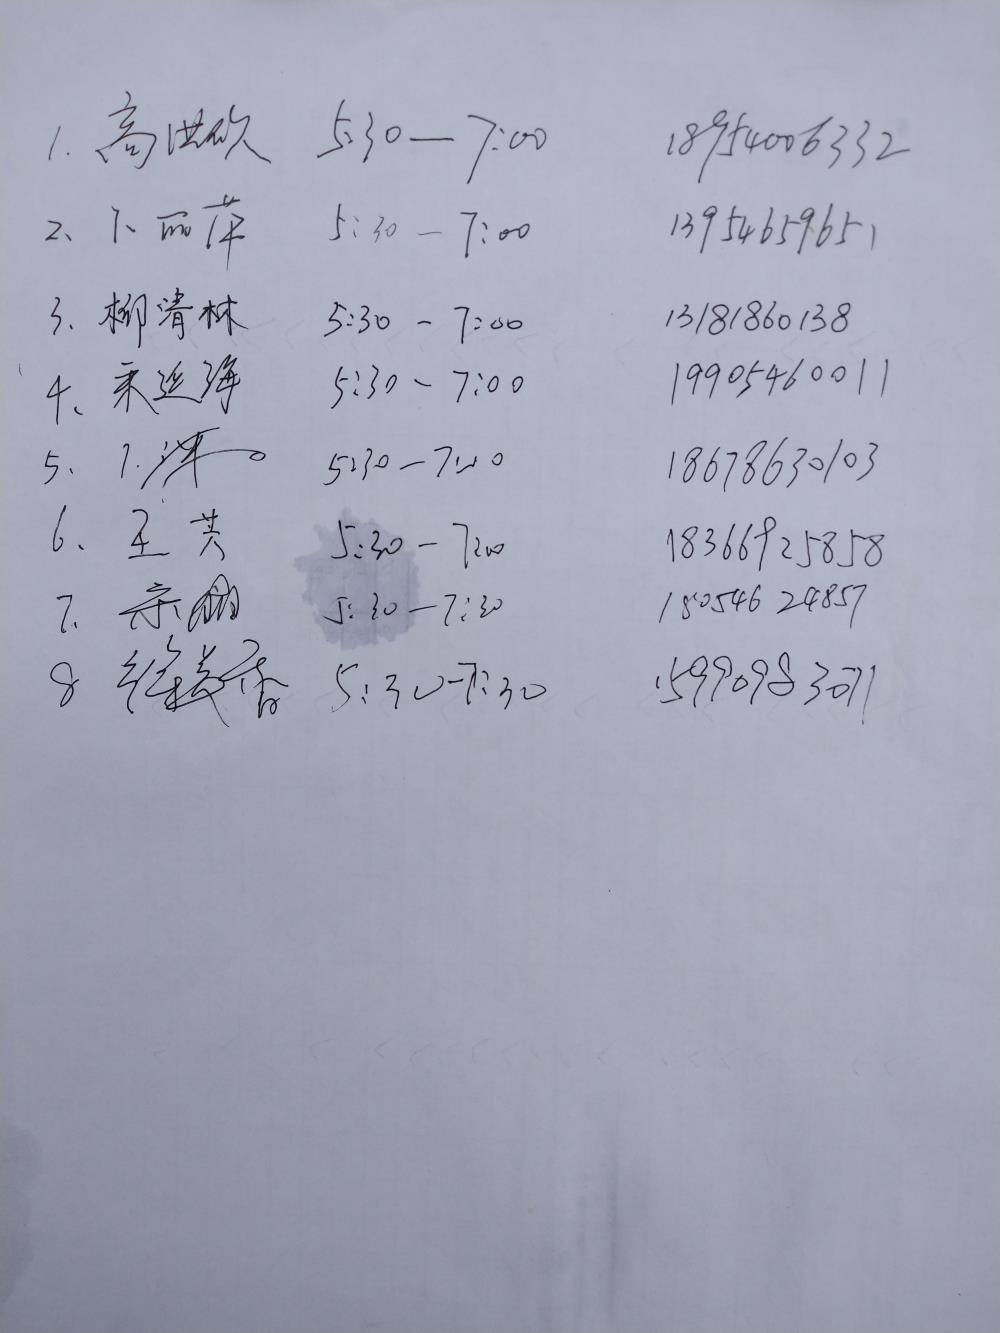 1. 高洪欣 5:30—7:00 18954006332
2、卜丽萍 5:30—7:00 13954659651
3、柳清林 5:30—7:00 13181860138
4、来延海 5:30—7:00 19905460011
5、 5:30—7:00 18678630103
6、王英 5:30—7:00 18366925858
7、 5:30—7:30 18054624857
8 徐美香 5:30-7:30 15990983071